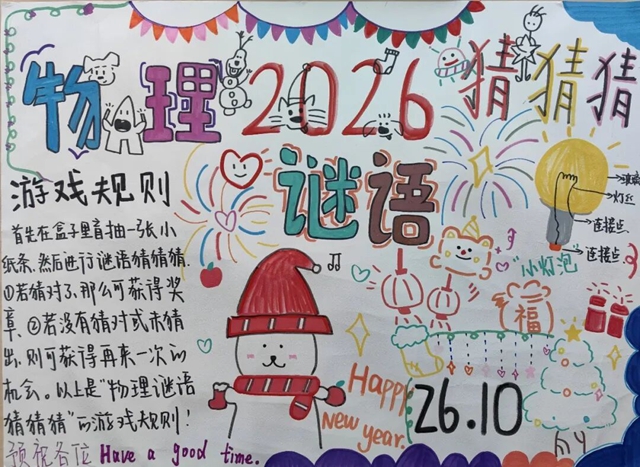 物理 2026 猜猜猜
谜语
游戏规则
首先在盒子里盲抽一张小
纸条,然后进行谜语猜猜猜.
①若猜对了,那么可获得奖
章,②若没有猜对或未猜
出,则可获得再来一次的
机会。以上是“物理谜语
猜猜猜”的游戏规则!
预祝各位 Have a good time.
玻璃
灯丝
连接点
连接点
“小灯泡”
福
Happy
New year.
26.10